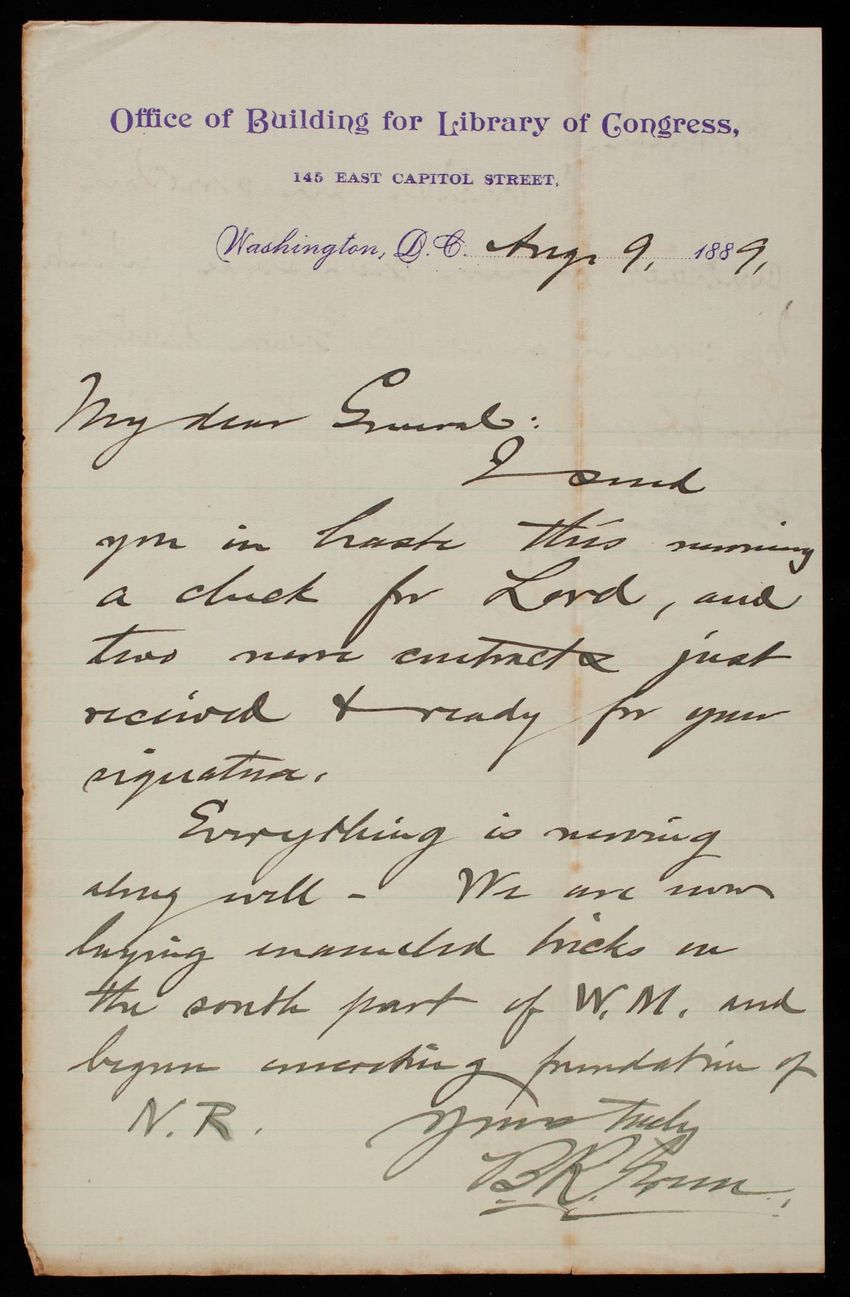 Office of Building for Library of Congress,
145 EAST CAPITOL STREET,
Washington, D.C. Aug. 9, 1889,
My dear General:
I send
you in haste this morning
a check for Lord, and
two more contracts just
received & ready for your
signature.
Everything is moving
along well – We are now
laying enameled bricks in
the south part of W. M. and
begun concreting foundation of
N. R. Yours truly
B R. Green.